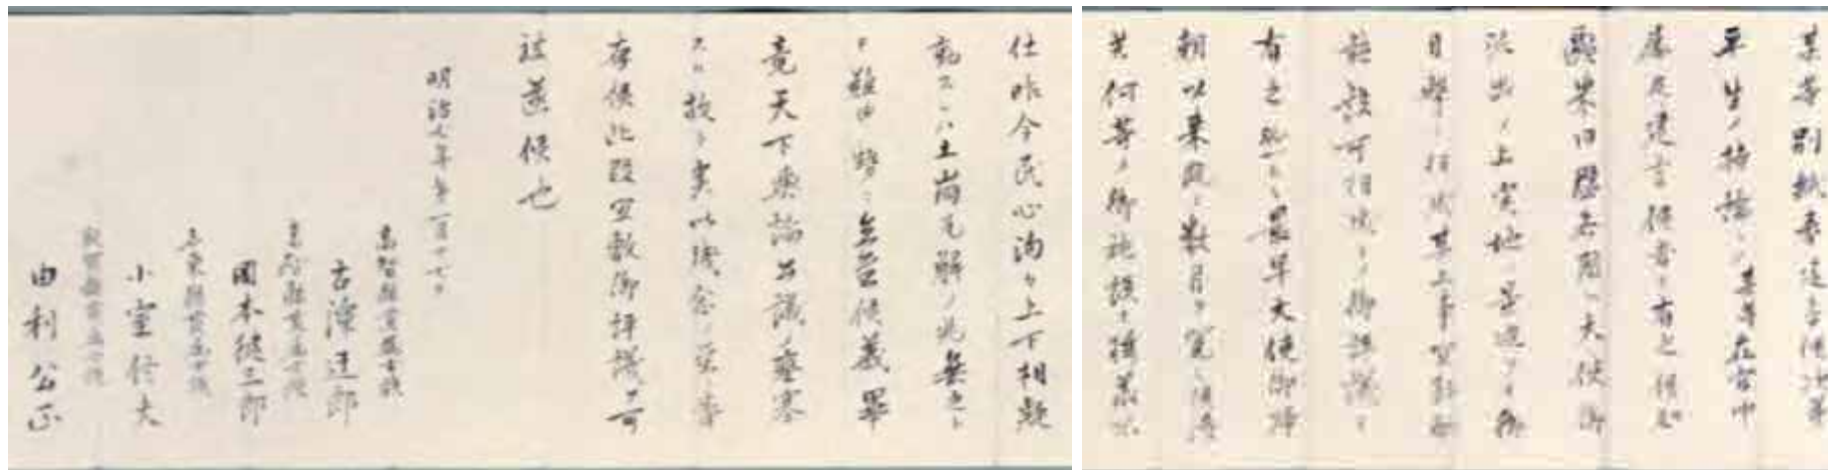 某等別紙奉建言候次第
平生ノ持論ニシテ某等在官中
屡及建言候者モ有之候処
欧米同盟各国ヘ大使御
派出ノ上実地ノ景況ヲモ御
目撃ニ相成其上事宜斟酌
施設可相成トノ御評議モ
有之然ルニ最早大使御帰
朝以来既ニ数月ヲ閲シ候得
共何等ノ御施設モ拝承不
仕昨今民心洶々上下相疑
動スレハ土崩瓦解ノ兆無之ト
モ難申勢ニ立至候義畢
竟天下輿論公議ノ壅塞
スル故ト実以残念ノ至ニ奉
存候此段宜敷御評議ヲ可
被遂候也
明治七年第一月十七日
高知縣貫属士族
古澤迂郎
高知縣貫属士族
岡本健三郎
名東縣貫属士族
小室信夫
敦賀縣貫属士族
由利公正